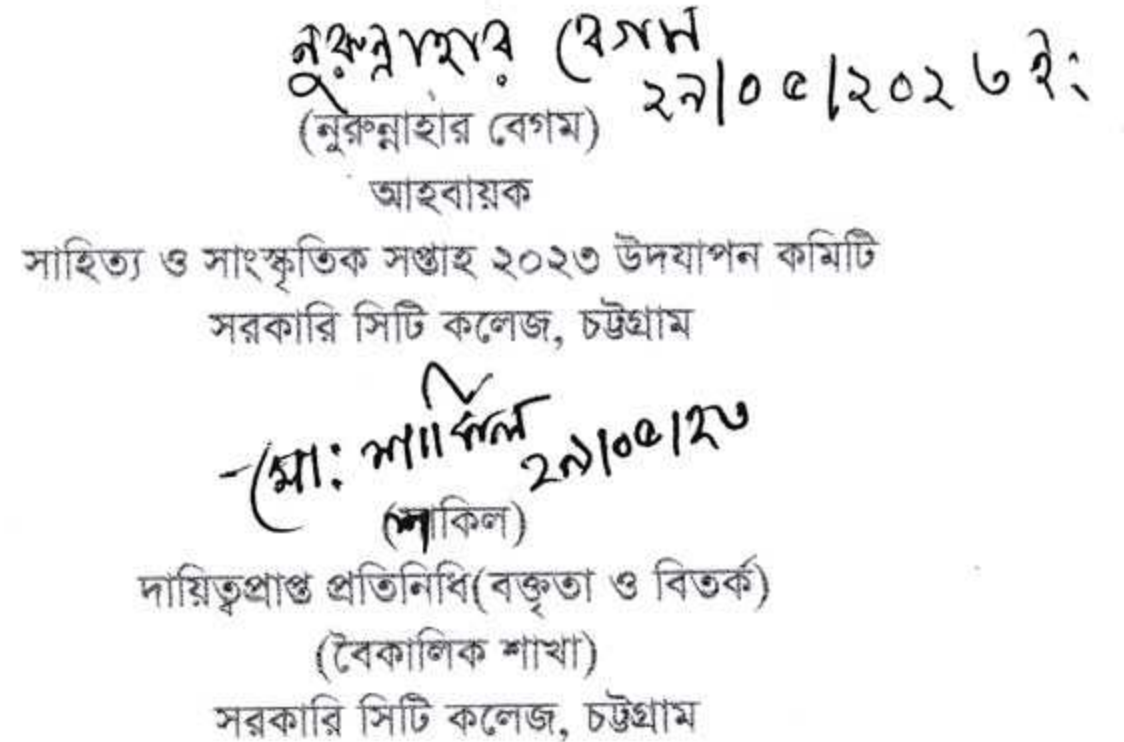 নুরুন্নাহার বেগম
২৯/০৫/২০২৩ ইং
(নুরুন্নাহার বেগম)
আহবায়ক
সাহিত্য ও সাংস্কৃতিক সপ্তাহ ২০২৩ উদযাপন কমিটি
সরকারি সিটি কলেজ, চট্টগ্রাম
মো: শাকিল
২৯/০৫/২৩
(শাকিল)
দায়িত্বপ্রাপ্ত প্রতিনিধি(বক্তৃতা ও বিতর্ক)
(বৈকালিক শাখা)
সরকারি সিটি কলেজ, চট্টগ্রাম